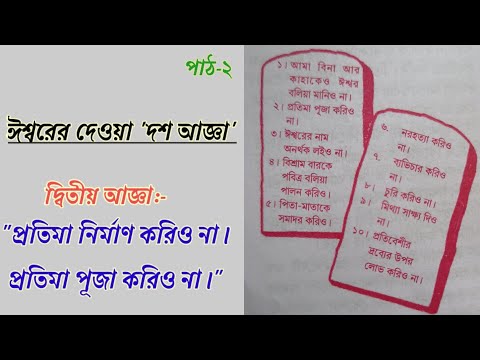 পাঠ-২
ঈশ্বরের দেওয়া 'দশ আজ্ঞা'
দ্বিতীয় আজ্ঞা:-
"প্রতিমা নির্মাণ করিও না।
প্রতিমা পূজা করিও না।"
১। আমা বিনা আর
কাহাকেও ঈশ্বর
বলিয়া মানিও না।
২। প্রতিমা পূজা করিও
না।
৩। ঈশ্বরের নাম
অনর্থক লইও না।
৪। বিশ্রাম বারকে
পবিত্র বলিয়া
পালন করিও।
৫। পিতা-মাতাকে
সমাদর করিও।
৬. নরহত্যা করিও
না।
৭. ব্যভিচার করিও
না।
৮। চুরি করিও না।
৯। মিথ্যা সাক্ষ্য দিও
না।
১০। প্রতিবেশীর
দ্রব্যের উপর
লোভ করিও না।